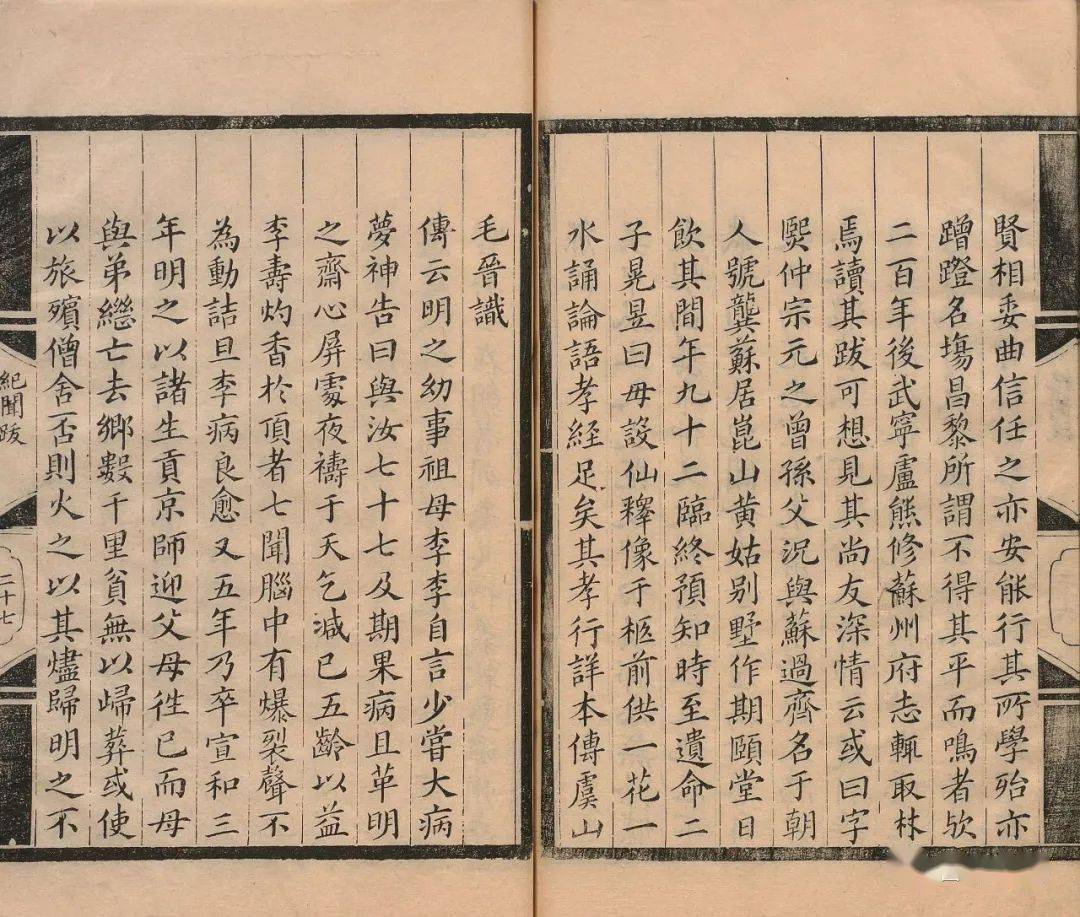 賢相委曲信任之亦安能行其所學殆亦
蹭蹬名塲昌黎所謂不得其平而鳴者欤
二百年後武寧盧熊修蘇州府志輒取林
焉讀其跋可想見其尚友深情云或曰字
熙仲宗元之曾孫父況與蘇過齊名于朝
人號龔蘇居崑山黄姑别墅作期頤堂日
飲其間年九十二臨終預知時至遺命二
子晃昱曰毋設仙釋像于柩前供一花一
水誦論語孝經足矣其孝行詳本傳虞山
毛晉識
傳云明之幼事祖母李李自言少嘗大病
夢神告曰與汝七十七及期果病且革明
之齋心屏處夜禱于天乞減已五齡以益
李壽灼香於頂者七聞腦中有爆裂聲不
為動詰旦李病良愈又五年乃卒宣和三
年明之以諸生貢京師迎父母徃已而母
與弟繼亡去鄉數千里貧無以歸葬或使
以旅殯僧舍否則火之以其燼歸明之不
紀聞跋
二十七